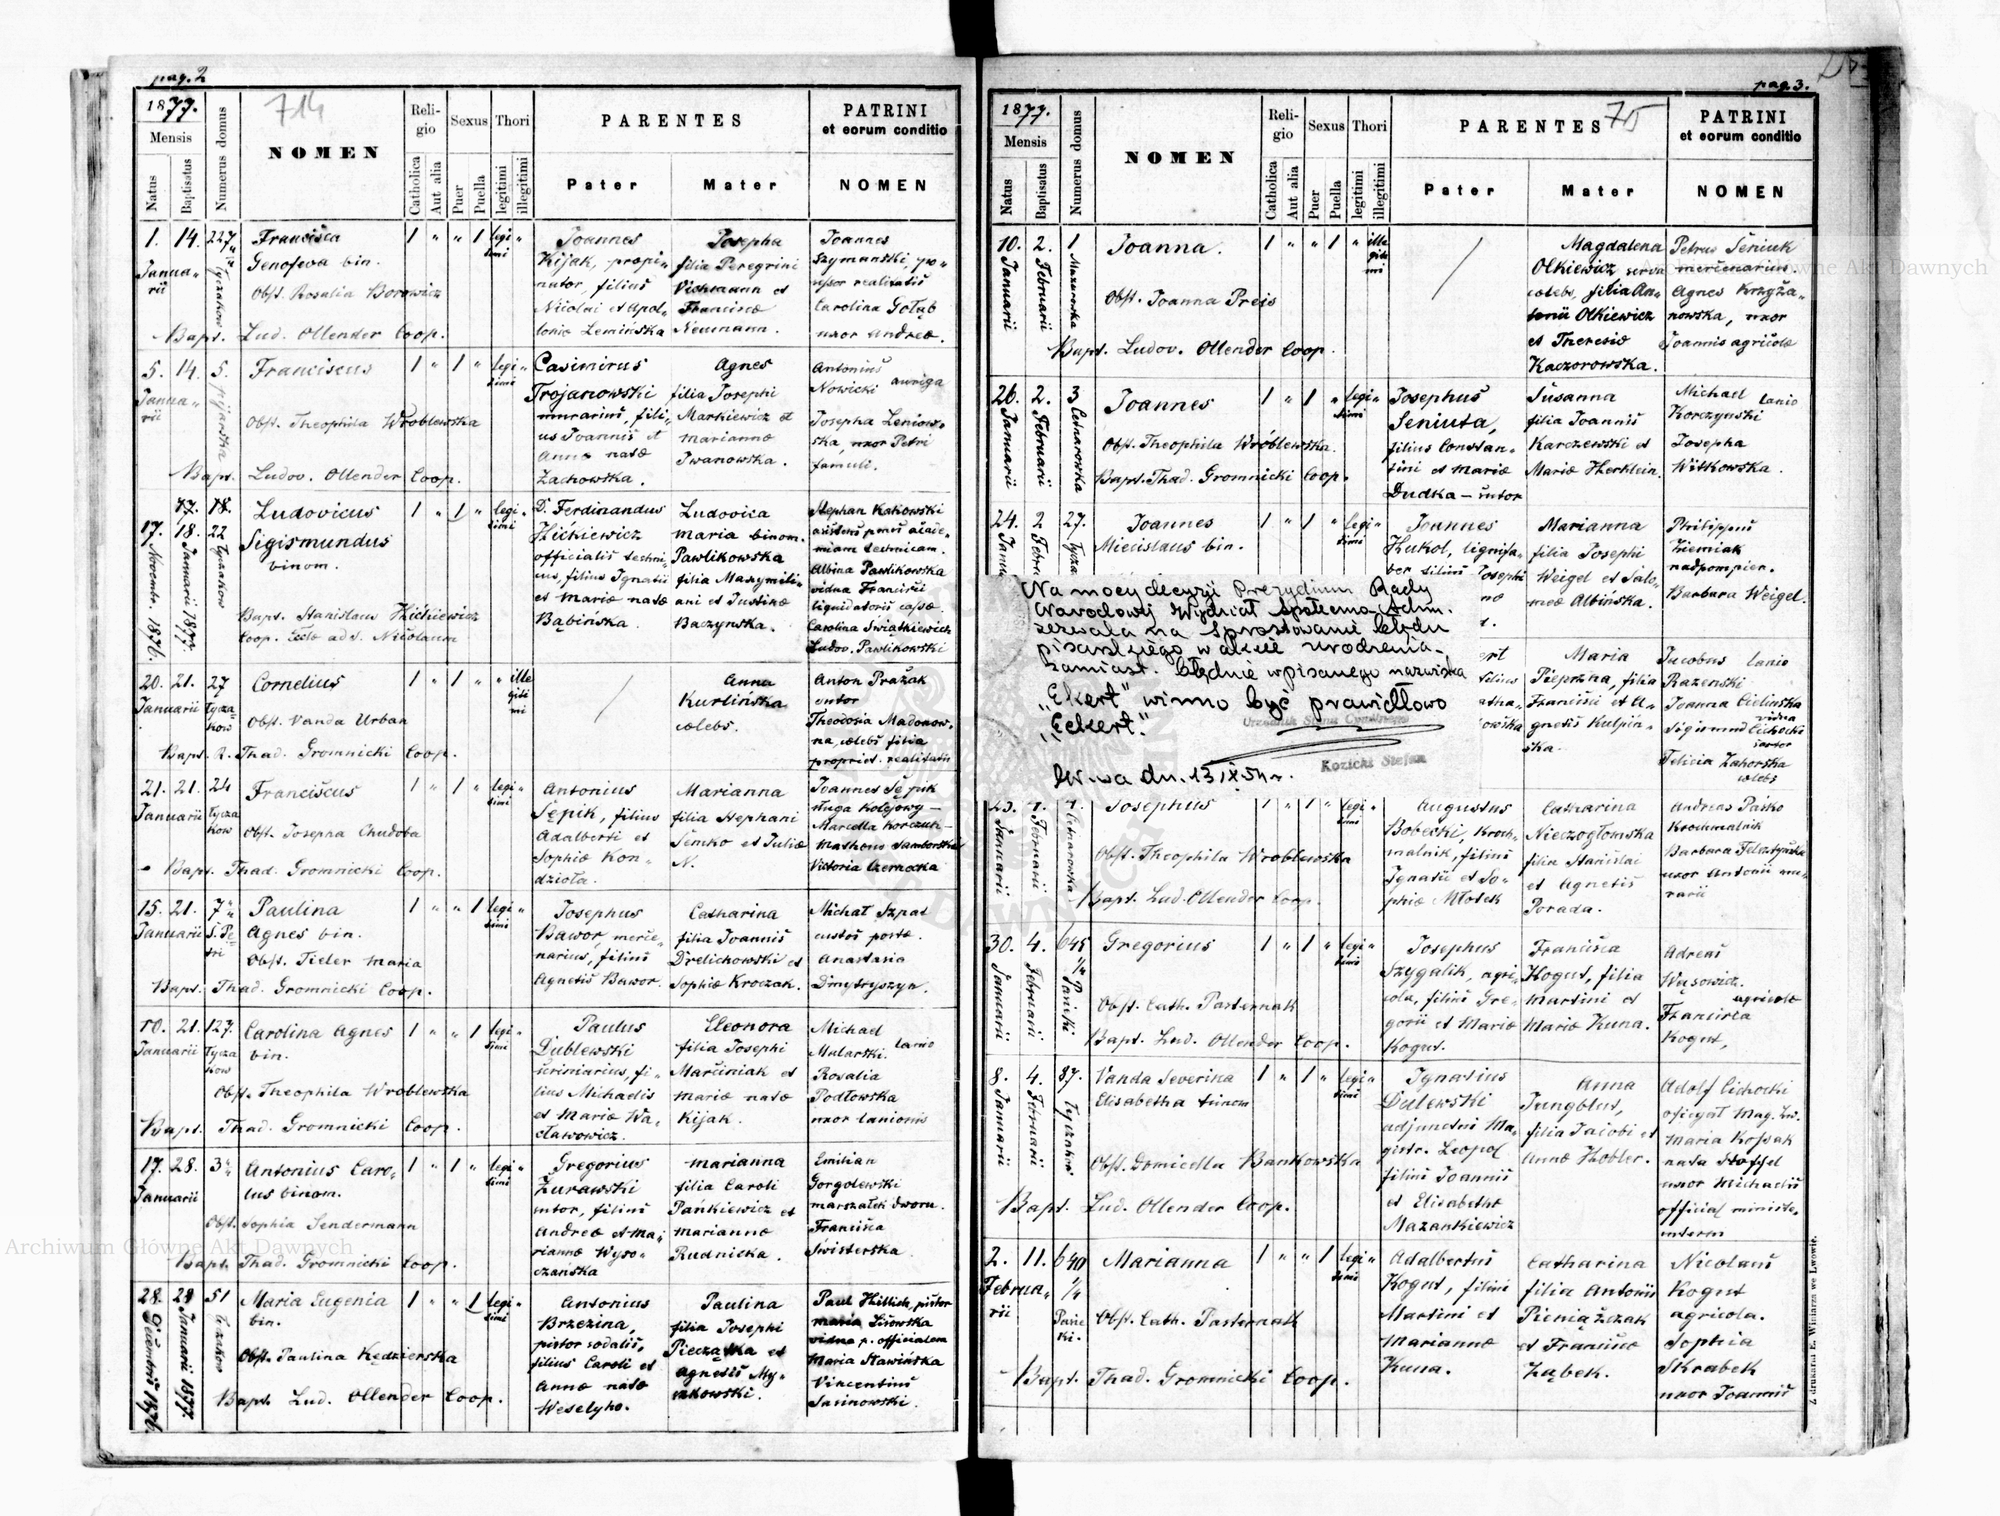 pag. 2
1877.
714
Mensis
Natus
Baptisatus
Numerus domus
NOMEN
Religio
Catholica
Aut alia
Sexus
Puer
Puella
Thori
legitimi
illegitimi
PARENTES
Pater
Mater
PATRINI
et eorum conditio
NOMEN
1. Januarii
14.
227
Francisca
Genofeva bin.
Obst. Rosalia Borowicz
Bapt. Lud. Ollender Coop.
1 " " 1 legitimi "
Joannes
Kijak, propi-
nator, filius
Nicolai et Apol-
loniæ Lemińska
Josepha
filia Peregrini
Vichmann et
Franciscæ
Neumann.
Joannes
Szymański, po-
ssor realitatis
Carolina Gołąb
uxor Andreæ.
5. Januarii
14.
5.
Franciscus
Obst. Theophila Wroblewska
Bapt. Ludov. Ollender Coop.
1 " 1 " legitimi "
Casimirus
Trojanowski
murarius, fili-
us Joannis et
Annæ natæ
Zachowska.
Agnes
filia Josephi
Markiewicz et
Mariannæ
Iwanowska.
Antonius
Nowicki auriga
Josepha Leniows-
ka, uxor Petri
famuli.
17. 18.
17. Novembr. 1876.
18. Januarii 1877.
22 Łyczakow
Ludovicus
Sigismundus
binom.
Bapt. Stanislaus Hickiewicz
Coop. Eccl. ad S. Nicolaum
1 " 1 " legitimi "
D. Ferdinandus
Hickiewicz
officialis techni-
cus, filius Ignatii
et Mariæ natæ
Bąbińska.
Ludovica
Maria binom.
Pawlikowska
filia Maxymili-
ani et Justinæ
Baczynska.
Stephan Kakowski
Albina Pawlikowska
vidua Francisci
liquidatoris cassæ
Carolina Swiątkiewicz
Ludov. Pawlikowski
20. Januarii
21.
27 Łyczakow
Cornelius
Obst. Vanda Urban
Bapt. R. Thad. Gromnicki Coop.
1 " 1 " " illegitimi
/
Anna
Kurlińska
cœlebs.
Anton Prażak
sutor
Theodosia Madonow-
na, cœlebs filia
propriet. realitatis
21. Januarii
21.
24 Łyczakow
Franciscus
Obst. Josepha Chudoba
Bapt. Thad. Gromnicki Coop.
1 " 1 " legitimi "
Antonius
Sępik, filius
Adalberti et
Sophiæ Kon-
dzioła.
Marianna
filia Stephani
Semko et Juliæ
N.
Joannes Sępik
sługa kolejowy
Victoria Czernecka
15. Januarii
21.
7 S. Petri
Paulina
Agnes bin.
Obst. Tieler Maria
Bapt. Thad. Gromnicki Coop.
1 " " 1 legitimi "
Josephus
Bawor, merce-
narius, filius
Agnetis Bawor.
Catharina
filia Joannis
Drelichowski et
Sophiæ Kroczak.
Michał Szpat
custos portæ.
Anastasia
Dmytryszyn.
10. Januarii
21.
127. Łyczakow
Carolina Agnes
bin.
Obst. Theophila Wroblewska
Bapt. Thad. Gromnicki Coop.
1 " " 1 legitimi "
Paulus
Dublewski
scriniarius, fi-
lius Michaelis
et Mariæ Wa-
cławowicz.
Eleonora
filia Josephi
Marciniak et
Mariæ natæ
Kijak.
Michael
Mularski. lanio
Rosalia
Podłowska
uxor lanionis
17. Januarii
28.
3
Antonius Caro-
lus binom.
Obst. Sophia Sendermann
Bapt. Thad. Gromnicki Coop.
1 " 1 " legitimi "
Gregorius
Żurawski
sutor, filius
Andreæ et Ma-
riannæ Wyso-
czańska
Marianna
filia Caroli
Pańkiewicz et
Mariannæ
Rudnicka.
Emilian
Gorgolewski
marszałek dworu.
Francisca
Swisterska.
28. Decembris 1876.
28 Januarii 1877.
51
Maria Eugenia
bin.
Obst. Paulina Kędzierska
Bapt. Lud. Ollender Coop.
1 " " 1 legitimi "
Antonius
Brzezina,
pistor sodalis,
filius Caroli et
Annæ natæ
Weselyho.
Paulina
filia Josephi
Pieczątka et
Agnetis My-
szkowski.
Paul Hillich, pistor
vidua p. officialem
Maria Sławińska
Vincentius
Sasinowski.
pag. 3.
1877.
75
Mensis
Natus
Baptisatus
Numerus domus
NOMEN
Religio
Catholica
Aut alia
Sexus
Puer
Puella
Thori
legitimi
illegitimi
PARENTES
Pater
Mater
PATRINI
et eorum conditio
NOMEN
10. Januarii
2. Februarii
1 Mazurowska
Joanna.
Obst. Joanna Preis
Bapt. Ludov. Ollender Coop.
1 " " 1 " illegitimi
/
Magdalena
Olkiewicz serva
cœlebs, filia An-
tonii Olkiewicz
et Theresiæ
Kaczorowska.
Petrus Seniuk
mercenarius.
Agnes Krzyża-
nowska, uxor
Joannis agricolæ
26. Januarii
2. Februarii
3 Cetnarowska
Joannes
Obst. Theophila Wróblewska.
Bapt. Thad. Gromnicki Coop.
1 " 1 " legitimi "
Josephus
Seniuta,
filius Constan-
tini et Mariæ
Dudka – sutor
Susanna
filia Joannis
Karczewski et
Mariæ Herklein.
Michael lanio
Korczynski
Josepha
Witkowska.
24.
2
27.
Joannes
Miecislaus bin.
1 " 1 " legitimi "
Joannes
Kukol, lignifa-
ber filius Josephi
Marianna
filia Josephi
Weigel et Salo-
meæ Albińska.
Philippus
Ziemiak
nadpompier.
Barbara Weigel.
Na mocy decyzji Prezydium Rady
Narodowej Wydział Społeczno-Adm.
zezwala na sprostowanie błędu
pisarskiego w akcie urodzenia.
zamiast błędnie wpisanego nazwiska
„Ekert" winno być prawidłowo
„Eckert".
Urzędnik Stanu Cywilnego
Kozicki Stefan
Maria
Pieprzna, filia
Francisci et A-
gnetis Kulpin-
ska.
Jacobus lanio
Razenski
Joanna Cielinska
vidua
Sigismund Cichocki
sartor
Felicia Zahorska
cœlebs
Josephus
Obst. Theophila Wroblewska
Bapt. Lud. Ollender Coop.
1 " 1 " legitimi "
Augustus
Bobecki, kroch-
malnik, filius
Ignatii et So-
phiæ Młotek
Catharina
Nieczogłomska
filia Stanislai
et Agnetis
Porada.
Andreas Paśko
Krochmalnik
uxor Antonii mu-
rarii
30. Januarii
4. Februarii
645 1/4 Pasieki
Gregorius
Obst. Cath. Pasternak
Bapt. Lud. Ollender Coop.
1 " 1 " legitimi "
Josephus
Szygalik, agri-
cola, filius Gre-
gorii et Mariæ
Kogut.
Francisca
Kogut, filia
Martini et
Mariæ Kuna.
Adreas
Wąsowicz.
agricolæ
Francisca
Kogut,
8. Januarii
4. Februarii
87. Łyczakow
Vanda Severina
Elisabetha trinom
Obst. Domicella Bankowska
Bapt. Lud. Ollender Coop.
1 " 1 " legitimi "
Ignatius
Dulewski
adjunctus Ma-
gistr. Leopol
filius Joannis
et Elisabethæ
Mazankiewicz
Anna
Jungblut,
filia Jacobi et
Annæ Kobler.
Adolf Cichocki
oficyał Mag. Lw.
Maria Kossak
nata Stoffel
uxor Michaelis
official ministe.
interm
2. Februarii
11.
640 1/4 Pasieki.
Marianna
Obst. Cath. Pasternak
Bapt. Thad. Gromnicki Coop.
1 " " 1 legitimi "
Adalbertus
Kogut, filius
Martini et
Mariannæ
Kuna.
Catharina
filia Antonii
Pieniążczak
et Franciscæ
Ząbek.
Nicolaus
Kogut
agricola.
Sophia
Skrabek
uxor Joannis
Z drukarni E. Winiarza we Lwowie.
Archiwum Główne Akt Dawnych